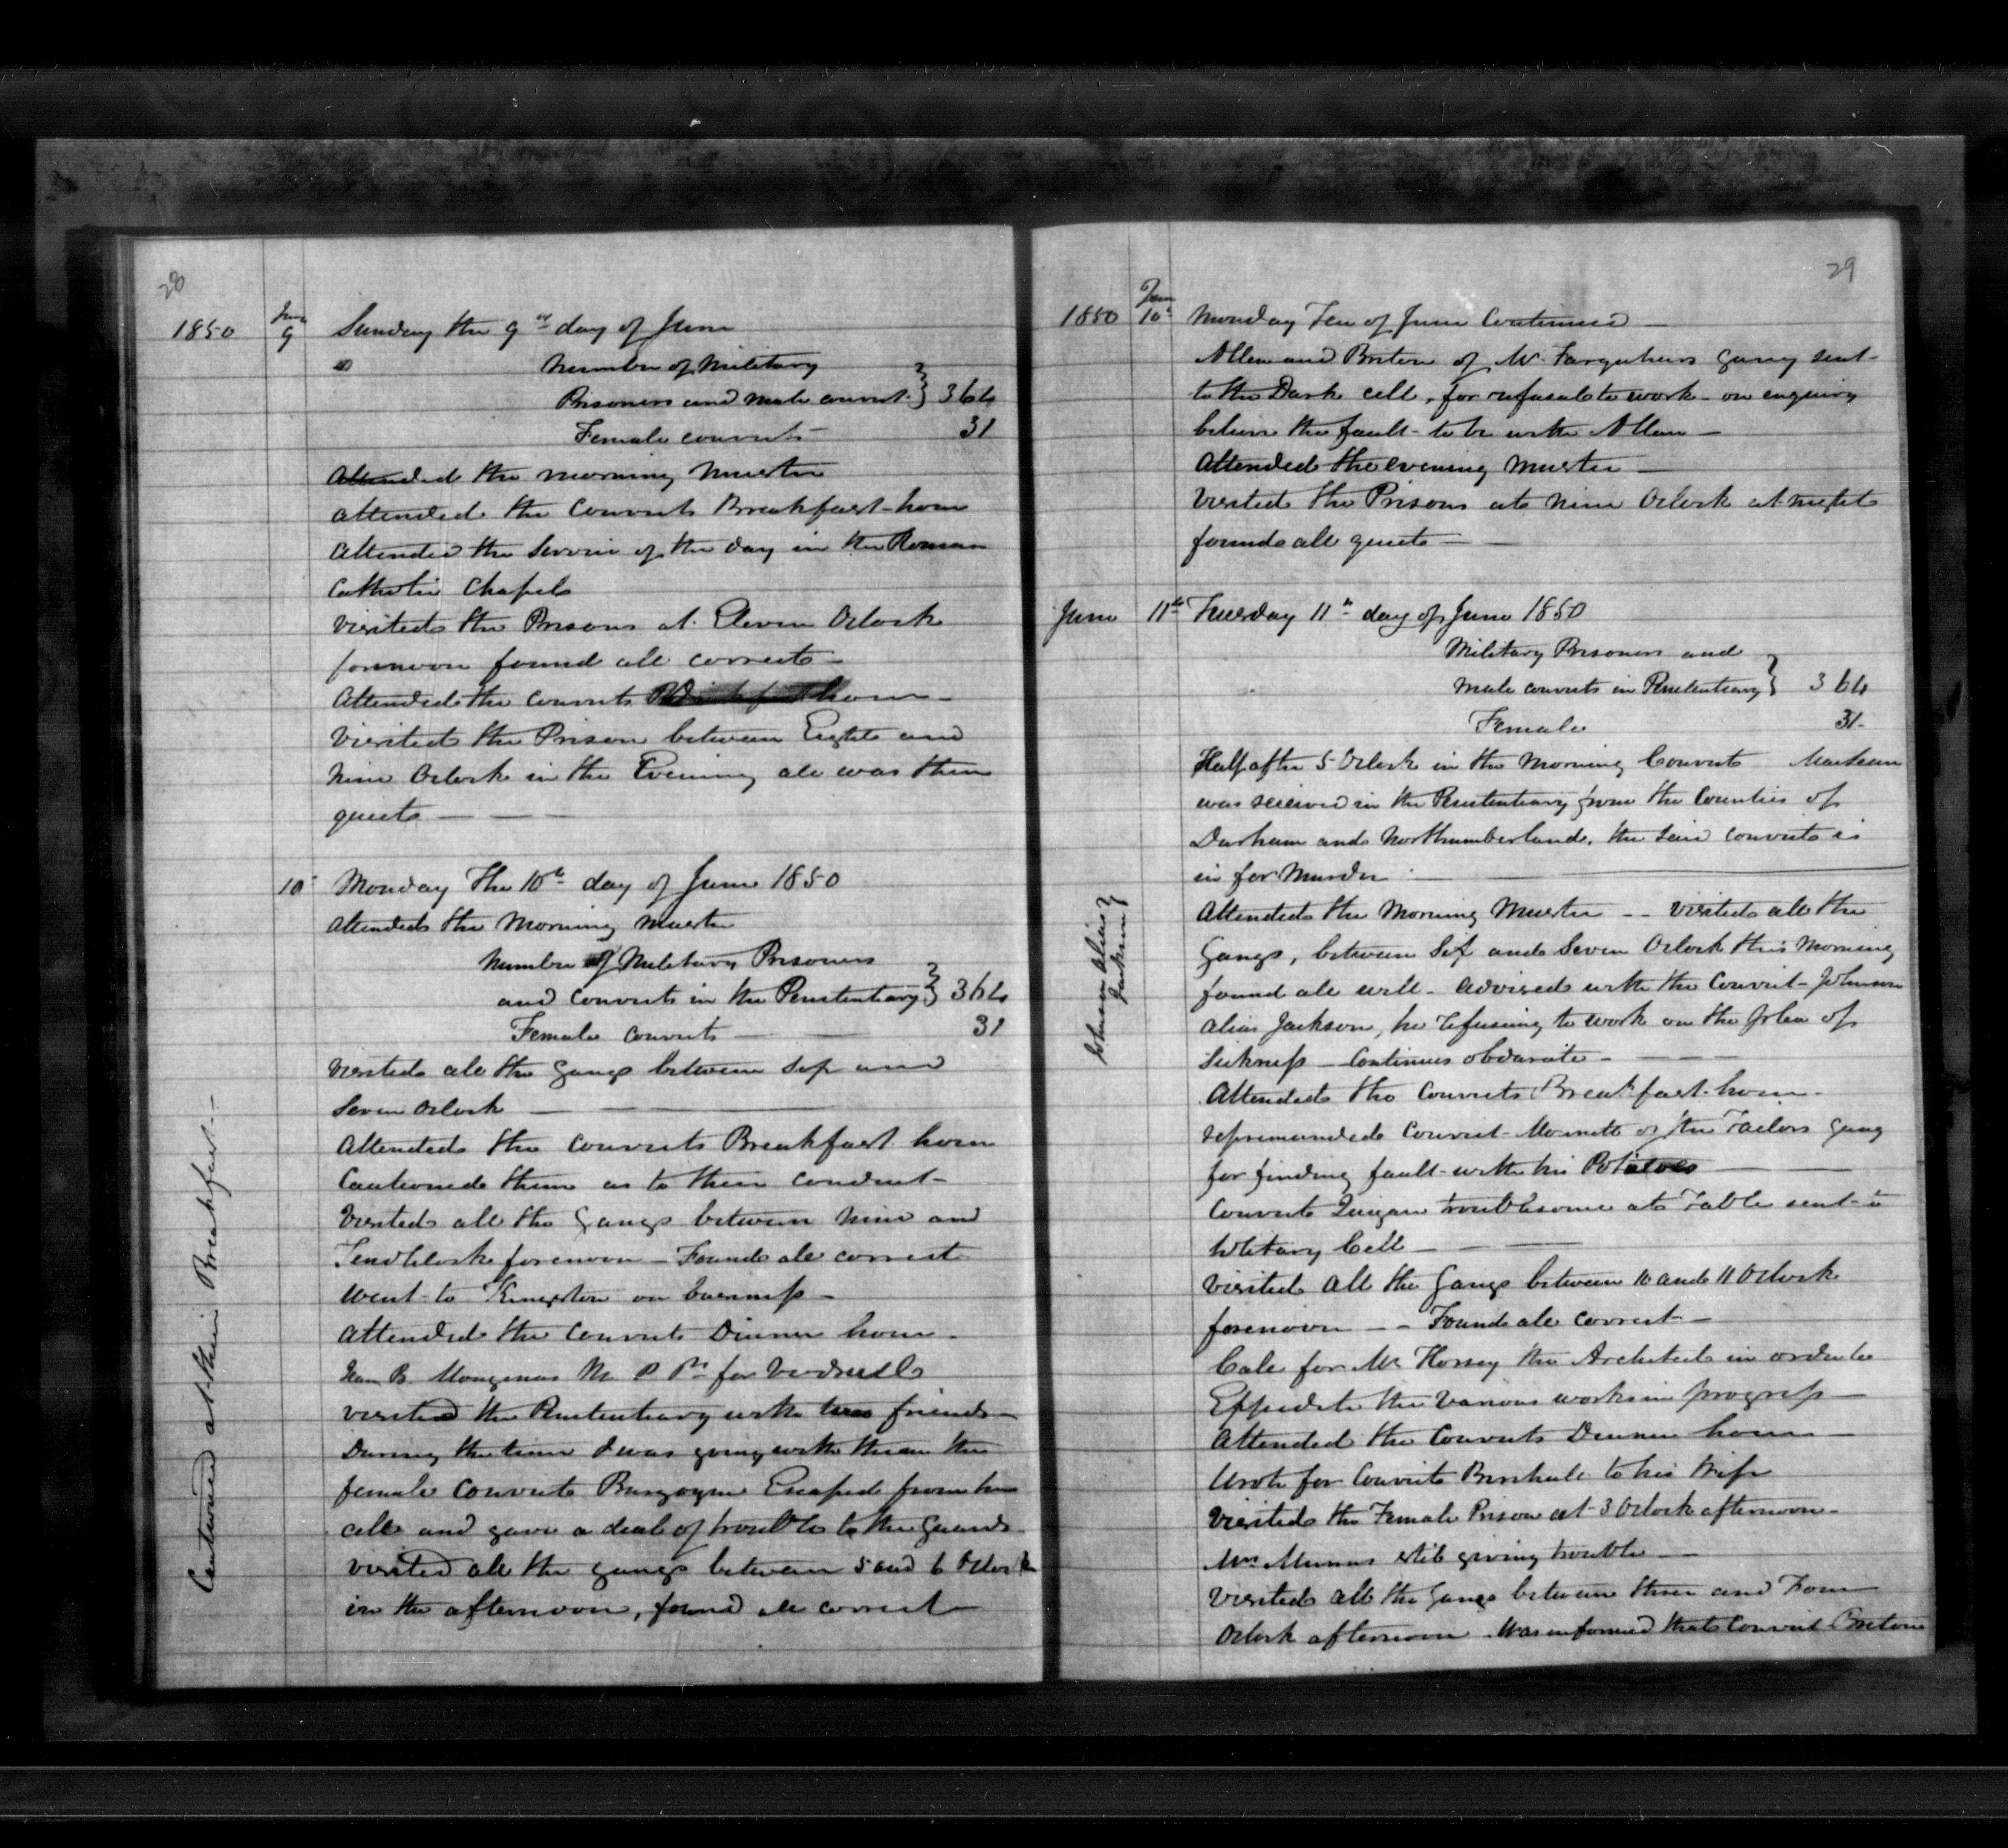 28
1850
June
9
Sunday the 9th day of June
Number of Military
Prisoners and male convict } 364
Female convicts 31
Attended the morning Muster
Attended the Convicts Breakfast hour
Attended the Service of the day in the Roman
Catholic Chapel
Visited the Prisons at Eleven Oclock
forenoon found all correct
Attended the Convicts hour
Visited the Prison between Eight and
Nine Oclock in the Evening all was then
quiet
10 Monday The 10th day of June 1850
Attended the Morning Muster
Number of Military Prisoners
and Convicts in the Penitentiary } 364
Female Convicts 31
Visited all the Gangs between Six and
Seven Oclock
Attended the Convicts Breakfast hour
Cautioned them as to their Conduct
Visited all the Gangs between Nine and
Ten Oclock forenoon - Found all correct
Went to Kingston on business
Attended the Convicts Dinner hour
B. M. P. P. for
visited the Penitentiary with two friends
During the time I was going with them the
female Convict Burgoyne Escaped from her
cell and gave a deal of trouble to the Guards
Visited all the gangs between 5 and 6 Oclock
in the afternoon, found all correct
Cautioned at their Breakfast
29
1850
June
10th
Monday Ten of June Continued
Allen and Briton of Mr. Farquhars Gang sent
to the Dark cell, for refusal to work - on enquiry
believe the fault to be with Allen
Attended the evening Muster
Visited the Prisons at Nine Oclock at night
found all quiet
June 11th Tuesday 11th day of June 1850
Military Prisoners and
Male convicts in Penitentiary } 364
Female 31
Half after 5 Oclock in the Morning Convict
was received in the Penitentiary from the Counties of
Durham and Northumberland, the said convict is
in for Murder
Attended the Morning Muster -- Visited all the
Gangs, between Six and Seven Oclock this Morning
found all well - advised with the Convict Johnson
alias Jackson, he refusing to work on the plea of
Sickness - Continues obdurate
Johnson alias } Jackson
Attended the Convicts Breakfast hour
reprimanded Convict of the Tailors Gang
for finding fault with his Potatoes
Convict troublesome at Table sent to
Solitary Cell
Visited all the Gangs between 10 and 11 Oclock
forenoon -- Found all correct
Call for Mr Horsey the Architect in order to
Expedite the various works in progress
Attended the Convicts Dinner hour
Wrote for Convict to his Wife
Visited the Female Prison at 3 Oclock afternoon
Mrs still giving trouble
Visited all the Gangs between three and Four
Oclock afternoon Was informed that Convict Briton